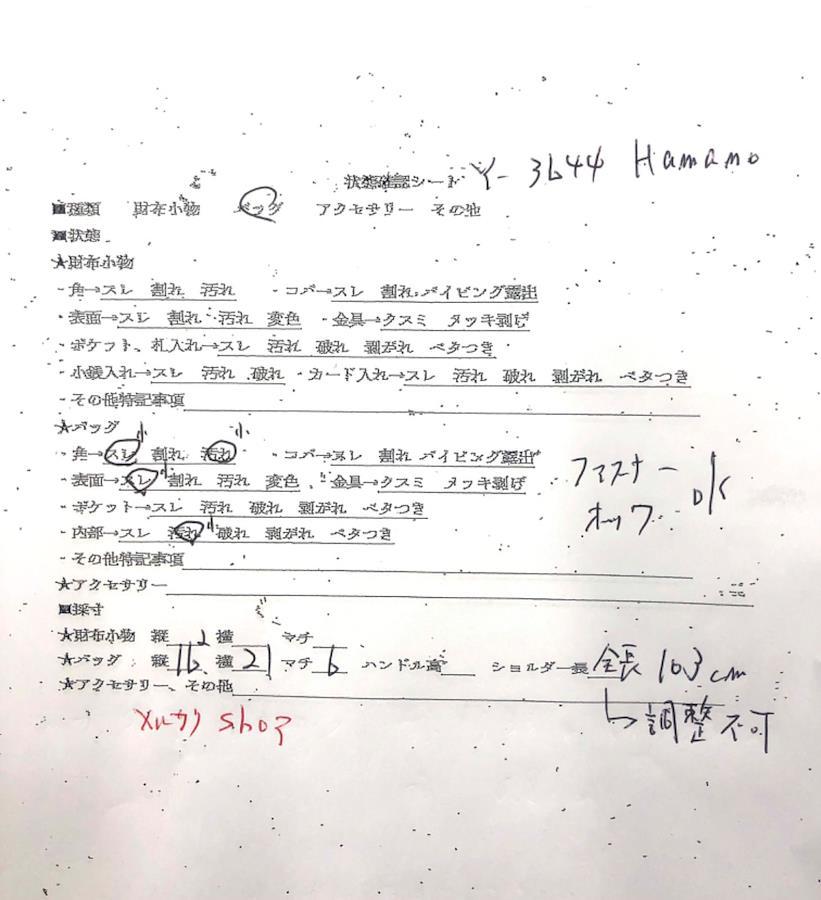 状態確認シート Y-3644 Hamano
■種類 財布小物 バッグ アクセサリー その他
■状態
★財布小物
・角→スレ 割れ 汚れ ・コバ→スレ 割れ パイピング露出
・表面→スレ 割れ 汚れ 変色 ・金具→クスミ メッキ剥げ
・ポケット、札入れ→スレ 汚れ 破れ 剥がれ ベタつき
・小銭入れ→スレ 汚れ 破れ ・カード入れ→スレ 汚れ 破れ 剥がれ ベタつき
・その他特記事項
★バッグ 小 小
・角→スレ 割れ 汚れ ・コバ→スレ 割れ パイピング露出
・表面→スレ 小 割れ 汚れ 変色 ・金具→クスミ メッキ剥げ
ファスナー
ホック OK
・ポケット→スレ 汚れ 破れ 剥がれ ベタつき
・内部→スレ 汚れ 小 破れ 剥がれ ベタつき
・その他特記事項
★アクセサリー
■採寸
★財布小物 縦 横 マチ
★バッグ 縦 16 横 21 マチ 6 ハンドル高 ショルダー長 全長 103cm
★アクセサリー、その他
↳調整不可
メルカリ shop